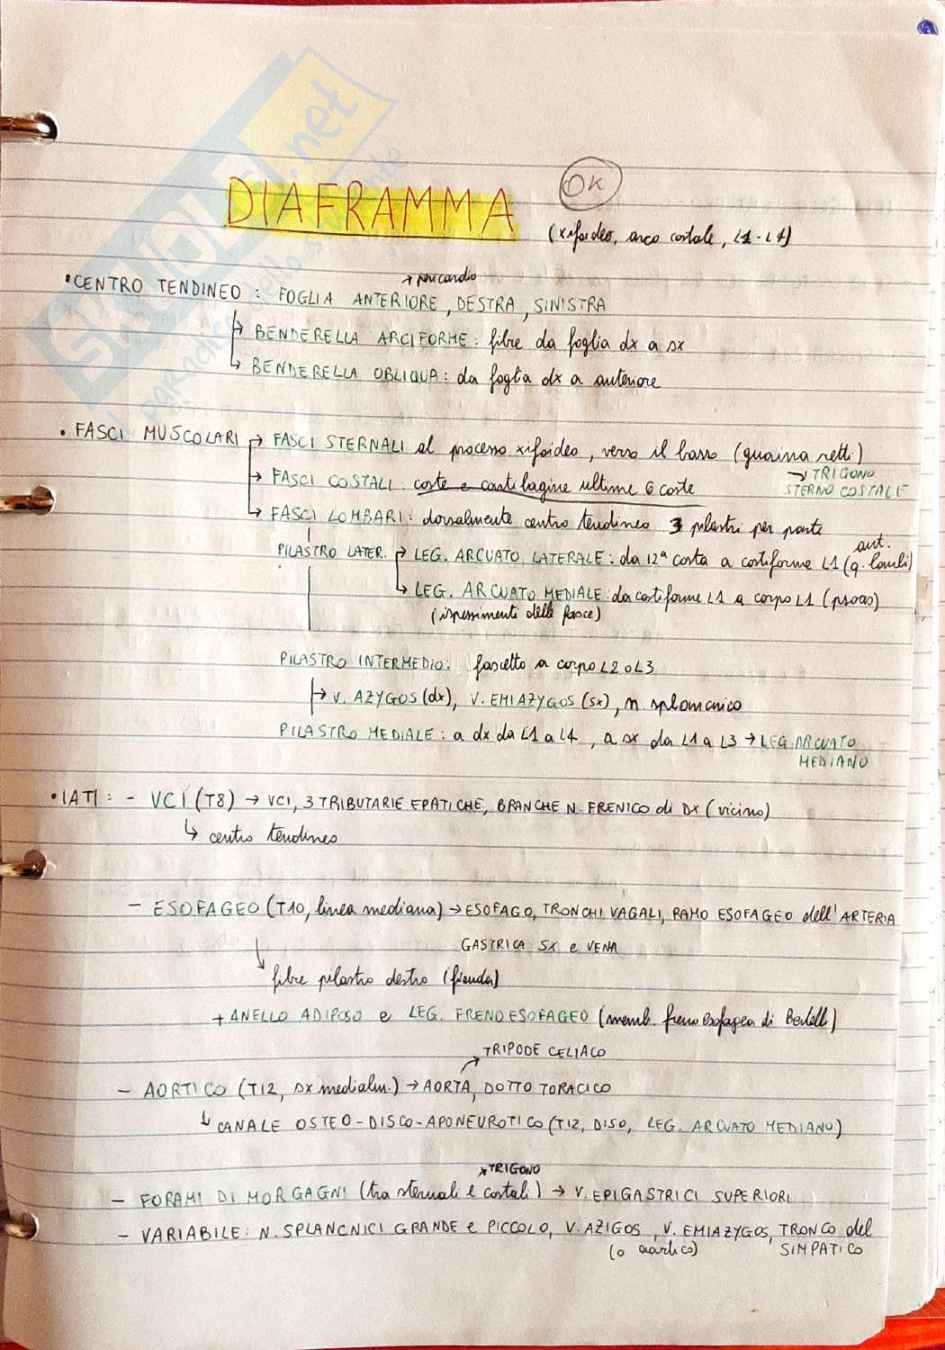 SKUOLA.net
il paradiso dello studente
DIAFRAMMA
OK
(xifoideo, arco costale, L1-L4)
→ pericardio
• CENTRO TENDINEO : FOGLIA ANTERIORE, DESTRA, SINISTRA
→ BENDERELLA ARCIFORME : fibre da foglia dx a sx
→ BENDERELLA OBLIQUA : da foglia dx a anteriore
• FASCI MUSCOLARI → FASCI STERNALI al processo xifoideo, verso il basso (guaina retti)
→ TRIGONO
→ FASCI COSTALI : coste e cartilagine ultime 6 coste
STERNO COSTALE
→ FASCI LOMBARI : dorsalmente centro tendineo 3 pilastri per parte
ant.
PILASTRO LATER. → LEG. ARCUATO LATERALE : da 12ª costa a costiforme L1 (q. lombi)
→ LEG. ARCUATO MEDIALE : da costiforme L1 a corpo L1 (psoas)
(ispessimento delle fasce)
PILASTRO INTERMEDIO : fascetto a corpo L2 o L3
→ V. AZYGOS (dx), V. EMIAZYGOS (sx), n. splancnico
PILASTRO MEDIALE : a dx da L1 a L4, a sx da L1 a L3 → LEG ARCUATO
MEDIANO
• IATI : - VCI (T8) → VCI, 3 TRIBUTARIE EPATICHE, BRANCHE N. FRENICO di DX (vicino)
↳ centro tendineo
- ESOFAGEO (T10, linea mediana) → ESOFAGO, TRONCHI VAGALI, RAMO ESOFAGEO dell'ARTERIA
GASTRICA SX e VENA
↳ fibre pilastro destro (fionda)
+ ANELLO ADIPOSO e LEG. FRENOESOFAGEO (memb. frenoesofagea di Bertelli)
→ TRIPODE CELIACO
- AORTICO (T12, DX medialm.) → AORTA, DOTTO TORACICO
↳ CANALE OSTEO-DISCO-APONEUROTICO (T12, DISO, LEG. ARCUATO MEDIANO)
→ TRIGONO
- FORAMI DI MORGAGNI (tra sternali e costali) → V. EPIGASTRICI SUPERIORI
- VARIABILE : N. SPLANCNICI GRANDE e PICCOLO, V. AZIGOS, V. EMIAZYGOS, TRONCO del
(o aortico) SIMPATICO